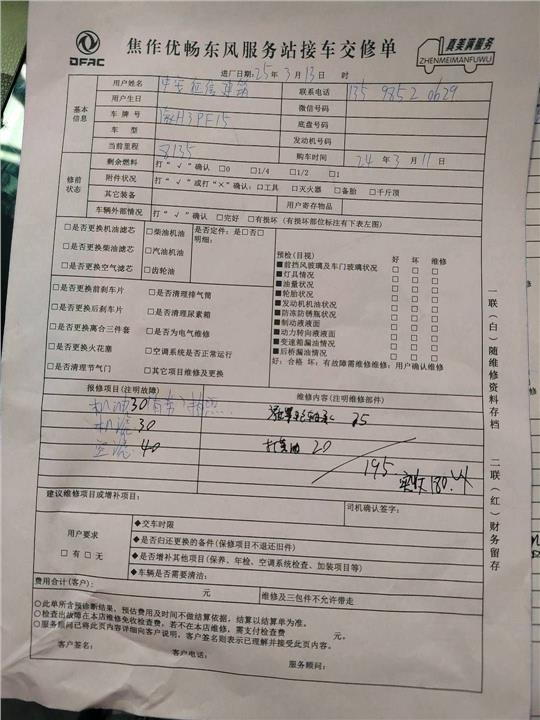 DFAC
焦作优畅东风服务站接车交修单
真美满服务
ZHENMEIMANFUWU
进厂日期:25年3月13日 时
基本信息
用户姓名
联系电话 135 9852 0629
用户生日
微信号码
车牌号 H3PF15
底盘号码
车型
发动机号码
当前里程 8135
购车时间 24年3月11日
修前状态
剩余燃料 打“√”确认 □0 □1/4 □1/2 □1
附件状况 打“√”或打“×”确认:□工具 □灭火器 □备胎 □千斤顶
其它装备
用户寄存物品
车辆外部情况 打“√”确认 □完好 □有损坏(有损坏部位标注有下表左图)
□是否更换机油滤芯 □柴油机油
□是否更换柴油滤芯 □汽油机油
□是否更换空气滤芯 □齿轮油
是否定件:是□否□
明细:
□是否更换前刹车片 □是否清理排气筒
□是否更换后刹车片 □是否清理尿素箱
□是否更换离合三件套 □是否为电气维修
□是否更换火花塞 □空调系统是否正常运行
□是否清理节气门 □其它项目维修及更换
预检(目视) 好 坏 维修
■前挡风玻璃及车门玻璃状况 □ □ □
■灯具情况 □ □ □
■油量状况 □ □ □
■轮胎状况 □ □ □
■发动机机油状况 □ □ □
■防冻防锈瓶状况 □ □ □
■制动液液面 □ □ □
■动力转向液液面 □ □ □
■变速箱漏油情况 □ □ □
■后桥漏油情况 □ □ □
好:合格 坏:有故障需维修维修:用户确认维修
报修项目(注明故障)
维修内容(注明维修部件)
机油30
25
机滤 30
打黄油 20
空滤 40
195 实收180.
建议维修项目或增补项目:
司机确认签字:
用户要求
□有 □无
◆交车时限
◆是否归还更换的备件(保修项目不退还旧件)
◆是否增补其他项目(保养、年检、空调系统检查、加装项目等)
◆车辆是否需要清洁:
费用合计(客户): 元
维修及三包件不允许带走
○此单所含预诊断结果,预估费用及时间不做结算依据,结算以结算单为准。
○检查出故障在本店维修免收检查费,若不在本店维修,需支付检查费 元。
○服务顾问已将此页内容详细向客户说明,客户签名则表示已理解并接受此页内容。
客户签名:
客户电话:
服务顾问:
一联(白)随维修资料存档 二联(红)财务留存